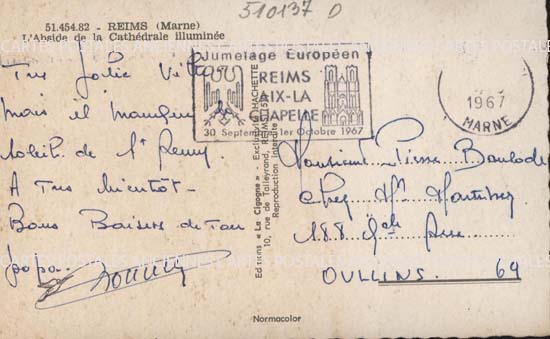 510137 D
51.454.82 - REIMS (Marne)
L'Abside de la Cathédrale illuminée
Très Jolie Ville
mais il manque le
soleil de St Remy.
A Très bientôt -
Bons Baisers de Ton
papa.
Jumelage Européen
REIMS
AIX-LA
CHAPELLE
30 Septembre 1er Octobre 1967
1967
MARNE
Editions « La Cigogne » - Exclusivité HACHETTE
10, rue de Talleyrand, REIMS
Reproduction interdite
Monsieur Pierre
Chez Mr
188
OULLINS. 69
Normacolor